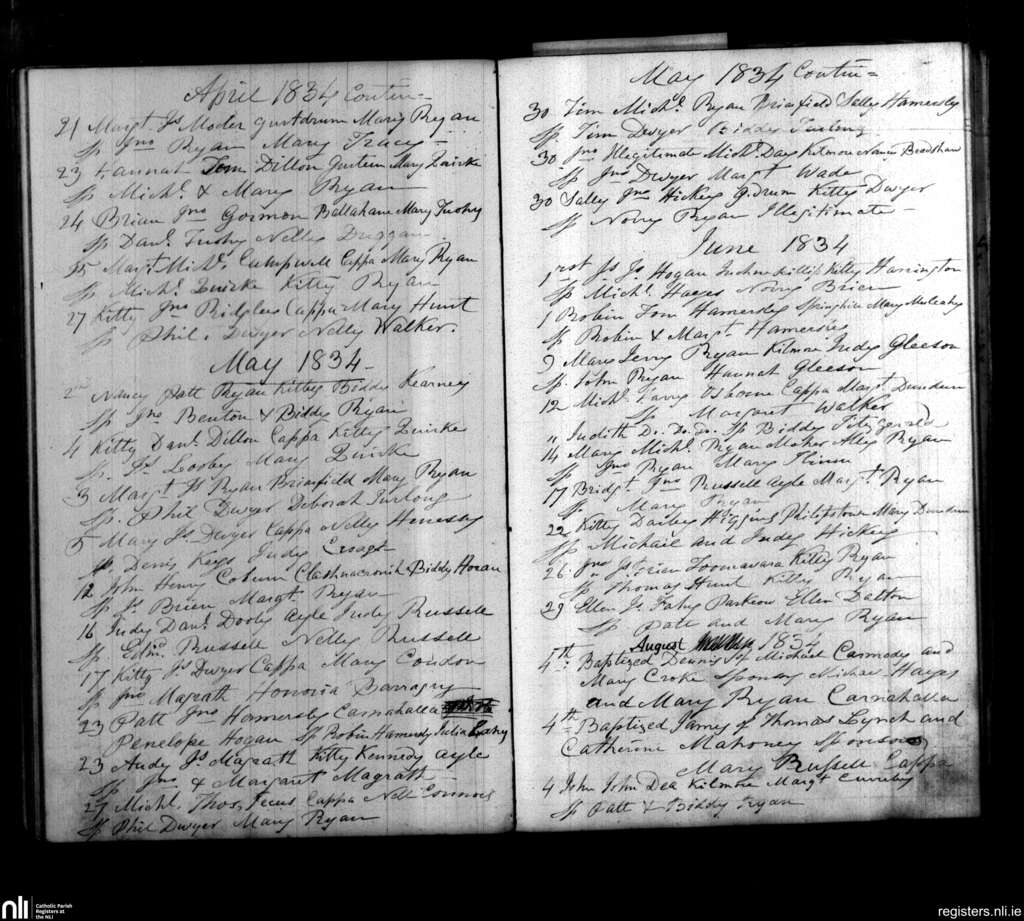 April 1834 Contin=
21 Margt. Js Moder Gurtdrum Mary Ryan
Sp Jno Ryan Mary Tracy
23 Hannah Tom Dillon Gurteen Mary Quirke
Sp Michl. & Mary Ryan
24 Brian Jno Gorman Ballahane Mary Tuohy
Sp Danl. Tuohy Nelly Duggan
25 Margt. Michl. Campwill Cappa Mary Ryan
Sp Michl. Quirke Kitty Ryan
27 Kitty Jno Ridgley Cappa Mary Hunt
Sp Phil. Dwyer Nelly Walker.
May 1834
2nd Nancy Patt Ryan Kitty Biddy Kearney
Sp Jno Benton & Biddy Ryan
4 Kitty Danl. Dillon Cappa Kitty Quirke
Sp. Js Looby Mary Quirke
3 Margt Js Ryan Brianfield Mary Ryan
Sp. Phil Dwyer Deborah Furlong
5 Mary Js Dwyer Cappa Nelly Henessy
Sp Denis Keys Judy
12 John Henry Coburn Clashnacronih Biddy Horan
Sp Js Brien Margt Ryan
16 Judy Danl. Dooly Ayle Judy Russell
Sp. Edmd. Russell Nelly Russell
17 Kitty Js Dwyer Cappa Mary Condon
Sp Jno Magrath Honoria Barragry
23 Patt Jno Hamersly Carnahalla
Penelope Hogan Sp Robin Hamersly Julia
23 Andy Js Magrath Kitty Kennedy Ayle
Sp Jno & Margaret Magrath
27 Michl. Thos. Cappa Nelly Connors
Sp Phil Dwyer Mary Ryan
May 1834 Contin=
30 Tim Michl. Ryan Brianfield Sally Hamersly
Sp Tim Dwyer Biddy Furlong
30 Jno Illegitimate Michl. Day Kilmore Nance Bradshaw
Sp Jno Dwyer Margt Wade
30 Sally Jno Hickey G.drum Kitty Dwyer
Sp Nory Ryan Illegitimate
June 1834
1rst Js Js Hogan Kitty Harrington
Sp Michl. Hayes Nory Brien
1 Robin Tom Hamersly Springhill Mary Mulcahy
Sp Robin & Margt Hamersley
9 Mary Jerry Ryan Kilmore Judy Gleeson
Sp. John Ryan Hannah Gleeson
12 Michl. Larry Osborne Cappa Margt. Dundum
Sp Margaret Walker
" Judith Do. Do. Do. Sp Biddy Fitzgerald
14 Mary Michl. Ryan Moher Ally Ryan
Sp Jno Ryan Mary
17 Bridgt. Jno Russell Ayle Margt Ryan
Sp Mary Ryan
22 Kitty Dailey Higgins Philipstown Mary Dundum
Sp Michail and Judy Hickey
26 Jno Js Brien Toomavara Kitty Ryan
Sp Thomas Hunt Kitty Ryan
29 Ellen Js Fahy Parkeou Ellen Dalton
Sp Patt and Mary Ryan
August 1834
4th: Baptized Dennis of Michael Carmody and
Mary Croke Sponsors Michael Hayes
and Mary Ryan Carnahalla
4th Baptized James of Thomas Lynch and
Catherine Mahoney Sponsors
Mary Russell Cappa
4 John John Dea Kilmore Margt
Sp Patt & Biddy Ryan
nli
Catholic Parish
Registers at
the NLI
registers.nli.ie